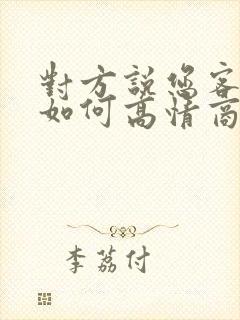 對方說您客
如何高情商
李荔付